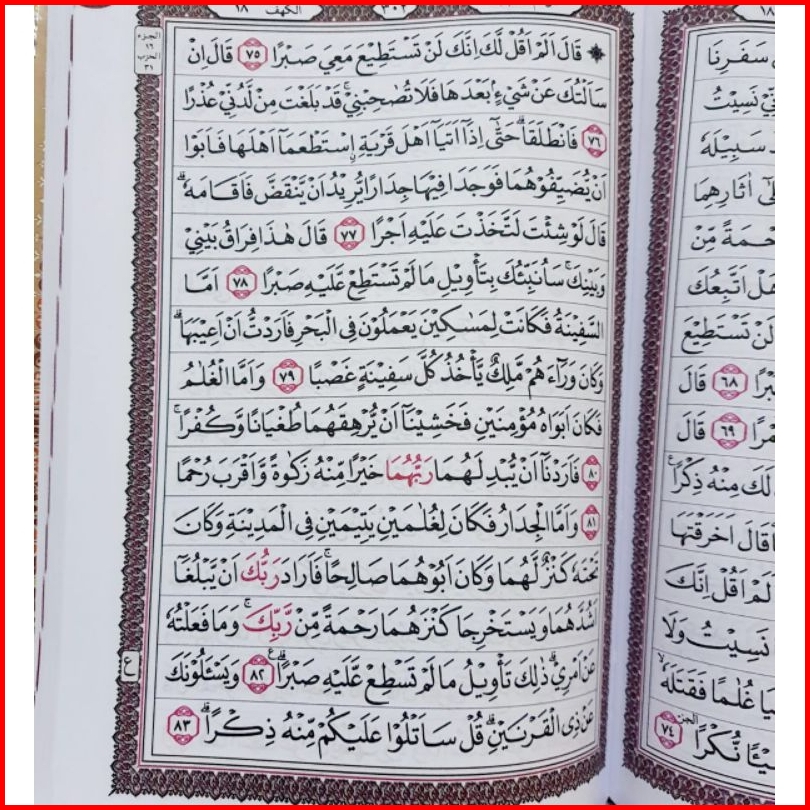 الكهف ١٨
٣٠٢
الجزء
١٦
الحزب
٣١
قَالَ اَلَمْ اَقُلْ لَّكَ اِنَّكَ لَنْ تَسْتَط۪يعَ مَعِيَ صَبْرًا ﴿٧٥﴾ قَالَ اِنْ
سَاَلْتُكَ عَنْ شَيْءٍ بَعْدَهَا فَلَا تُصَاحِبْن۪يۚ قَدْ بَلَغْتَ مِنْ لَدُنّ۪ي عُذْرًا
﴿٧٦﴾ فَانْطَلَقَا۠ حَتّٰٓى اِذَٓا اَتَيَٓا اَهْلَ قَرْيَةٍۨ اسْتَطْعَمَٓا اَهْلَهَا فَاَبَوْا
اَنْ يُضَيِّفُوهُمَا فَوَجَدَا ف۪يهَا جِدَارًا يُر۪يدُ اَنْ يَنْقَضَّ فَاَقَامَهُۜ
قَالَ لَوْ شِئْتَ لَتَّخَذْتَ عَلَيْهِ اَجْرًا ﴿٧٧﴾ قَالَ هٰذَا فِرَاقُ بَيْن۪ي
وَبَيْنِكَۚ سَاُنَبِّئُكَ بِتَأْو۪يلِ مَا لَمْ تَسْتَطِعْ عَلَيْهِ صَبْرًا ﴿٧٨﴾ اَمَّا
السَّف۪ينَةُ فَكَانَتْ لِمَسَاك۪ينَ يَعْمَلُونَ فِي الْبَحْرِ فَاَرَدْتُ اَنْ اَع۪يبَهَاۜ
وَكَانَ وَرَٓاءَهُمْ مَلِكٌ يَأْخُذُ كُلَّ سَف۪ينَةٍ غَصْبًا ﴿٧٩﴾ وَاَمَّا الْغُلٰمُ
فَكَانَ اَبَوَاهُ مُؤْمِنَيْنِ فَخَش۪ينَٓا اَنْ يُرْهِقَهُمَا طُغْيَانًا وَكُفْرًاۚ
﴿٨٠﴾ فَاَرَدْنَٓا اَنْ يُبْدِلَهُمَا رَبُّهُمَا خَيْرًا مِنْهُ زَكٰوةً وَاَقْرَبَ رُحْمًا
﴿٨١﴾ وَاَمَّا الْجِدَارُ فَكَانَ لِغُلٰمَيْنِ يَت۪يمَيْنِ فِي الْمَد۪ينَةِ وَكَانَ
تَحْتَهُ كَنْزٌ لَهُمَا وَكَانَ اَبُوهُمَا صَالِحًاۚ فَاَرَادَ رَبُّكَ اَنْ يَبْلُغَٓا
اَشُدَّهُمَا وَيَسْتَخْرِجَا كَنْزَهُمَا رَحْمَةً مِنْ رَبِّكَۚ وَمَا فَعَلْتُهُ
عَنْ اَمْر۪يۜ ذٰلِكَ تَأْو۪يلُ مَا لَمْ تَسْطِعْ عَلَيْهِ صَبْرًاۜ ﴿٨٢﴾ وَيَسْـَٔلُونَكَ
عَنْ ذِي الْقَرْنَيْنِۜ قُلْ سَاَتْلُوا عَلَيْكُمْ مِنْهُ ذِكْرًاۜ ﴿٨٣﴾
ع
سَفَرِنَا
نَس۪يتُ
سَب۪يلَهُ
اٰثَارِهِمَا
رَحْمَةً مِنْ
هَلْ اَتَّبِعُكَ
لَنْ تَسْتَط۪يعَ
﴿٦٨﴾ قَالَ
﴿٦٩﴾ قَالَ
لَكَ مِنْهُ ذِكْرًا
قَالَ اَخَرَقْتَهَا
اَلَمْ اَقُلْ اِنَّكَ
نَس۪يتُ وَلَا
غُلٰمًا فَقَتَلَهُ
شَيْـًٔا نُكْرًا ﴿٧٤﴾